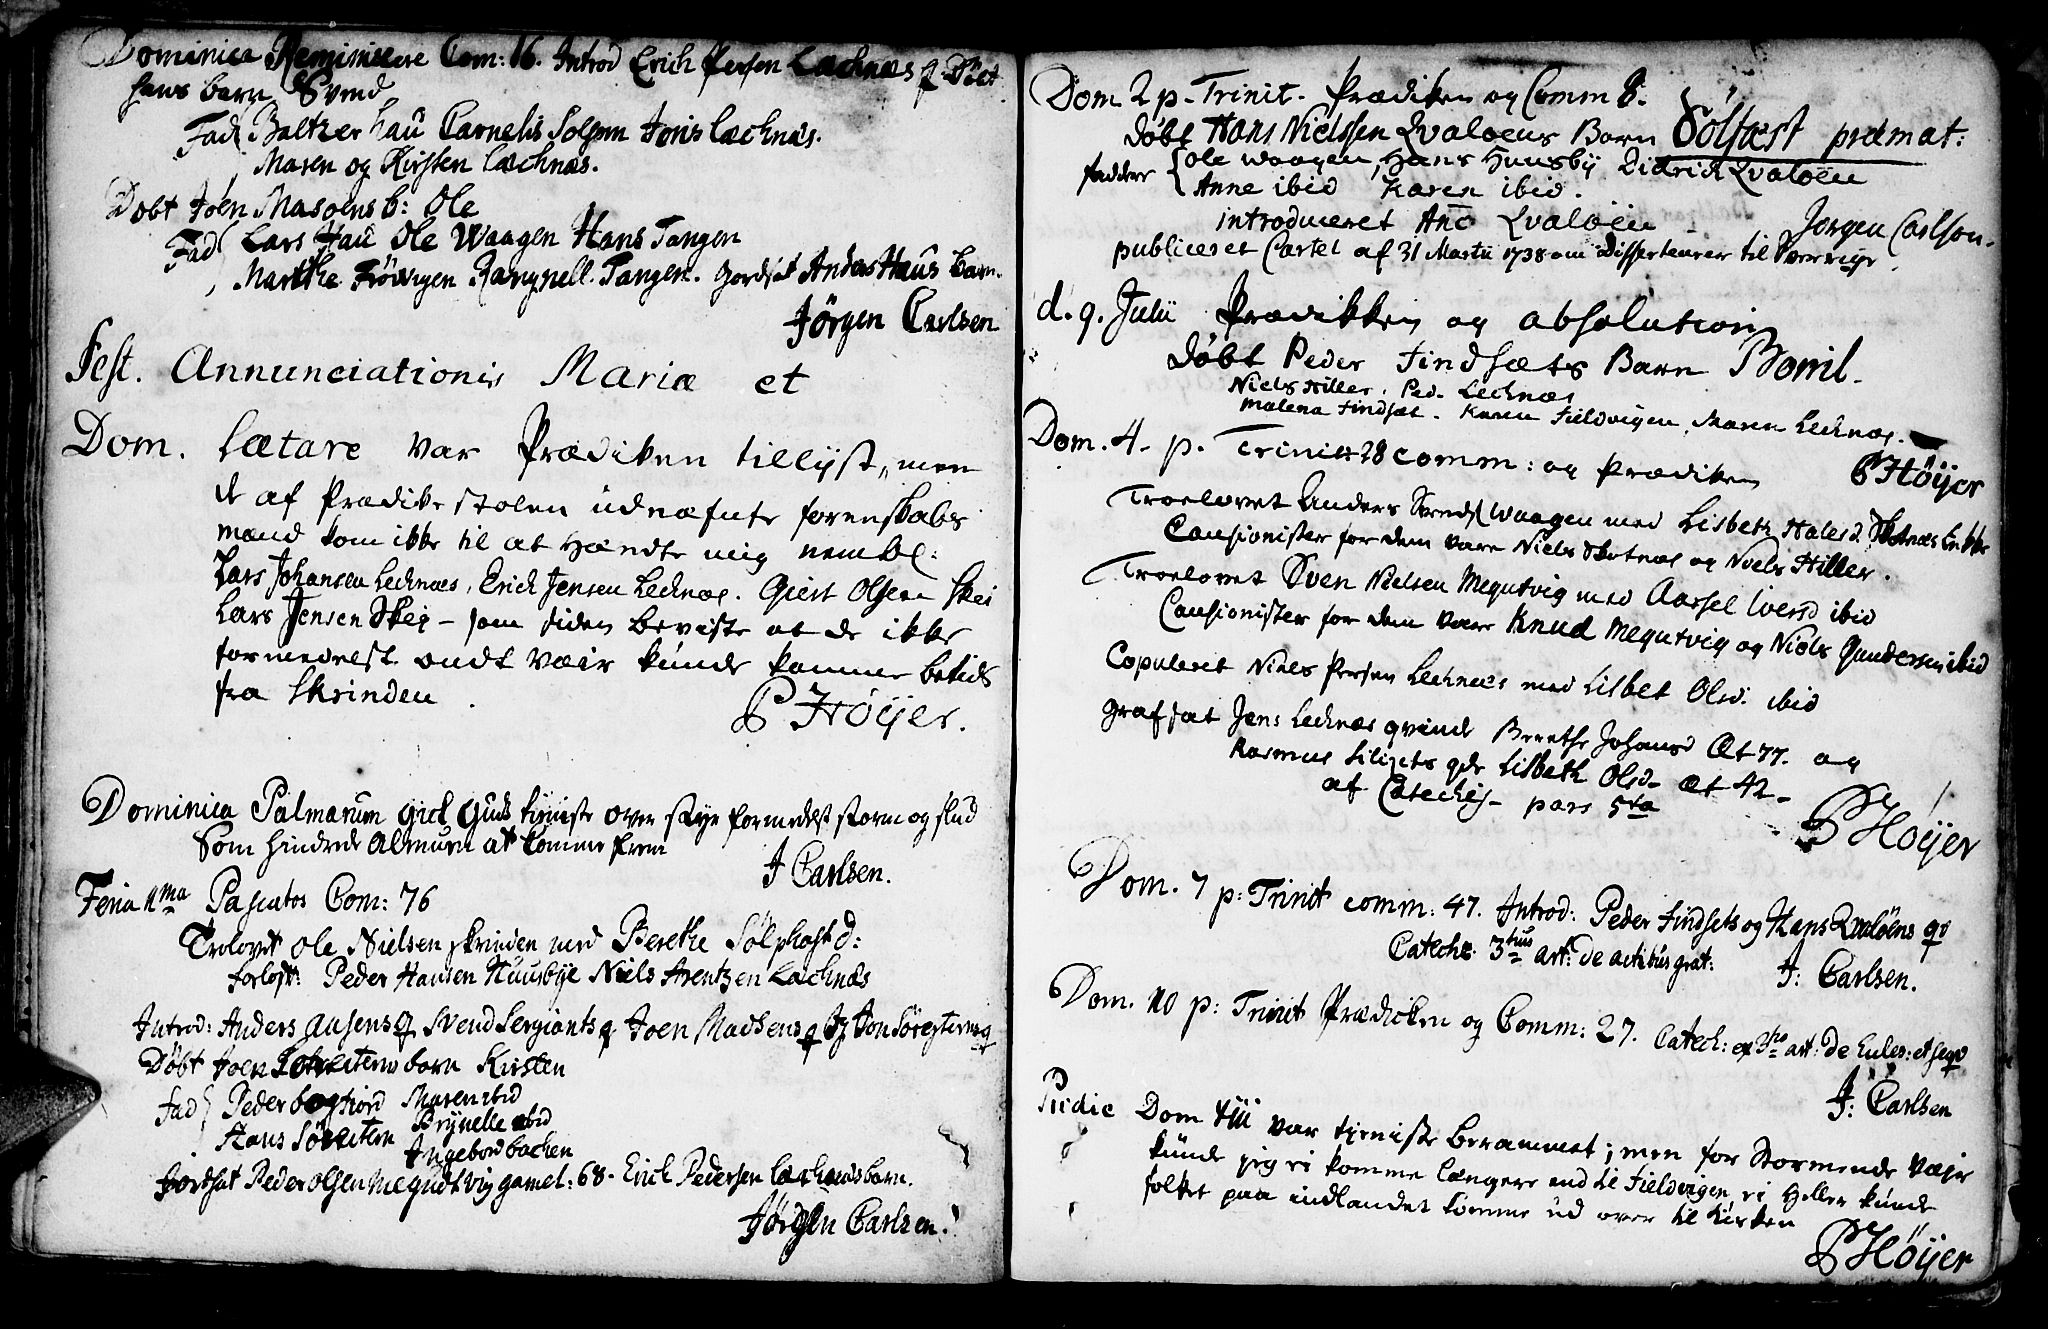 Dominica Reminiscere Com: 16. Introd Erich Persen Lechnæs q Døbt
hans barn Svend
Fad Baltzer hau Carnelis Solgam Jonis Lechnæs.
Maren og Kirsten Lechnæs.
Døbt Joen Masoens b: Ole
Fad Lars Hau Ole Waagen Hans Tangen
Marthe Frödvigen Rangnell Tangen. Jordsat Anders Haus barn.
Jørgen Carlsen
Fest. Annunciationis Mariæ et
Dom. Lætare var Prædiken tillijst, men
de af Prædikestolen udnæfnte forenskabs
mænd kom ikke til at hændte mig nembl:
Lars Johansen Lecknæs, Erick Jensen Lecknæs. Giert Olsen Skei
Lars Jensen Skeij - som siden beviste at de ikke
formedelst ondt væir kunde komme betids
fra Skrinden
P Høÿer.
Dominica Palmarum gick Guds tieniste over styr formedelst storm og slud
Som hindrede Almuen at komme frem
J Carlsen.
Feria 1ma Paschatos Com: 76
Trolovet Ole Nielsen skrinden med Berethe Sølphast d:
forloft: Peder Hansen Huusbye Niels Arentzen Lachnæs
Introd: Anders Ausens q Svend Sergiants q Joen Madsens q Og Jon Søregtems q
Døbt Joen barn Kirsten
Fad Peder bogfiord Maren ibid
Hans Brynelle ibid
Ingebor bachen
Jordsat Peder Olsen Megudtvig gamel: 68. Erich Pedersen Lachnæs barn.
Jørgen Carlsen.
Dom 2 p. Trinit. Prædiken og Comm 8.
Døbt Hans Nielssen Qvaløens Barn Sölfæst præmat:
faddere Ole Waagen, Hans Huusby Didrich Qvaløen
Anne ibid Karen ibid.
introduceret Ane Qvaløen
Jørgen Carlson.
publiceret Cartel af 31 Martii 1738 om Disserteurer til Sverrige
d. 9. Julii Prædikken og absolution
Døbt Peder Findsæts Barn Bomil.
Niels Hiller, Ped. Lecknæs
Malena Findsæt. Karen Fieldvigen, Maren Lecknæs.
Dom. 4. p. Trinit 28 comm: og Prædiken
P Høÿer
Troelovet Anders Svends Waagen med Lisbeth Halesd Skotnæs Enke
Causionister for dem vare Niels Skotnæs og Niels Hiller.
Troelovet Sven Nielsen Megutvig med Aassel Iversd ibid
Causionister for dem vare Knud Megutvig og Niels Gundersen ibid
Copuleret Niels Persen Lecknæs med Lisbet Olsd: ibid
Grafsat Jens Lecknæs qvinde Berethe Johansd Æt 77. og
Rasmus qde Lisbeth Olsd. æt 42.
af Catechis. pars 5ta
P Høÿer
Dom. 7 p: Trinit comm: 47. Introd: Peder Findsets og Hans Qvaløens qv
Catech. 3tius art: de actibus grat:
J: Carlsen.
Dom. 10 p: Trinit Prædicken og Comm: 27. Catech: ex 3tio art: de Eccles: et seqv
J: Carlsen
Pridie Dom var tieniste berammet; men for stormende vejr
kunde jeg ei komme længere end til Fieldvigen ei heller kunde
folket paa indlandet komme ud over til Kirken
P Høÿer